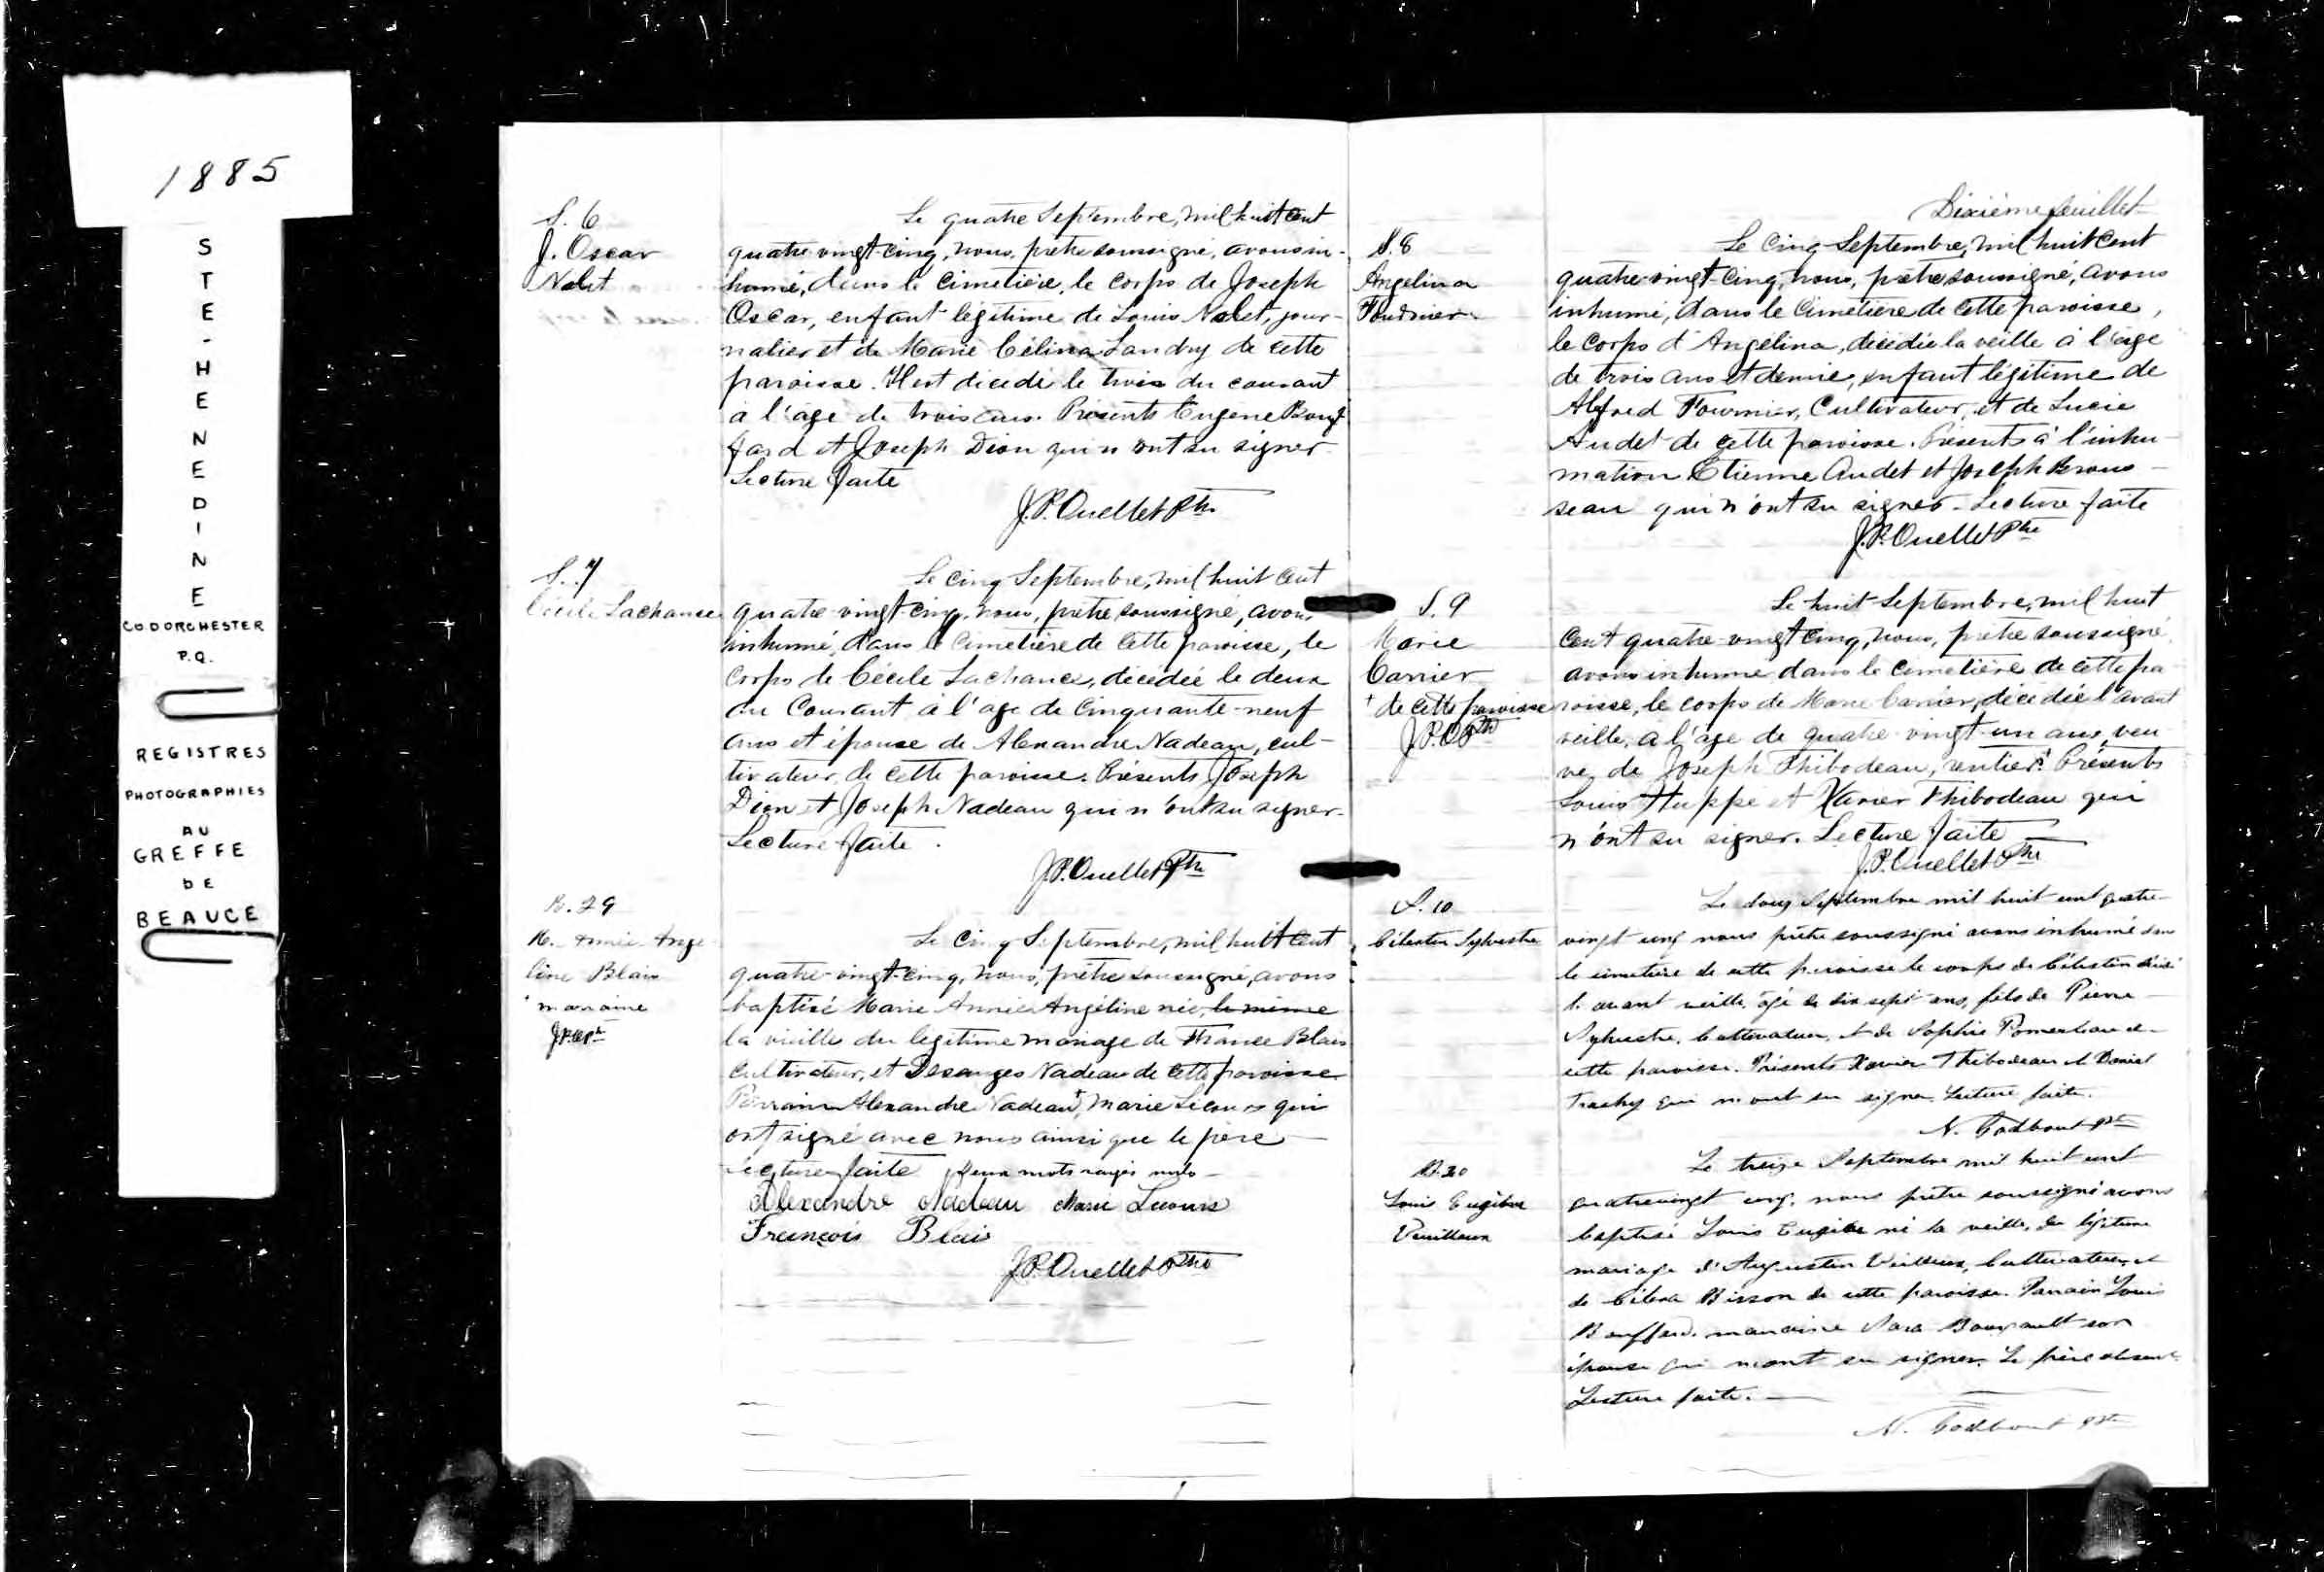 1885
STE-HENEDINE
CO. DORCHESTER
P.Q.
REGISTRES
PHOTOGRAPHIES
AU
GREFFE
DE
BEAUCE
S. 6
J. Oscar
Nolet
Le quatre Septembre, mil huit cent
quatre vingt-cinq, nous, prêtre soussigné, avons in-
humé, dans le cimetière, le corps de Joseph
Oscar, enfant légitime de Louis Nolet, jour-
nalier et de Marie Célina Landry de cette
paroisse. Il est décédé le trois du courant
à l'âge de trois ans. Présents Eugène Bouf-
fard et Joseph Dion qui n'ont su signer
Lecture faite
J.P. Ouellet Ptre
S. 7
Cécile Lachance
Le cinq Septembre, mil huit cent
quatre-vingt-cinq, nous, prêtre soussigné, avons
inhumé, dans le cimetière de cette paroisse, le
corps de Cécile Lachance, décédée le deux
du courant à l'âge de cinquante-neuf
ans et épouse de Alexandre Nadeau, cul-
tivateur, de cette paroisse. Présents Joseph
Dion et Joseph Nadeau qui n'ont su signer.
Lecture faite.
J.P. Ouellet Ptre
B. 29
M. Annie Ange
line Blais
+ marraine
J.P.O. Ptre
Le cinq Septembre, mil huit cent
quatre-vingt-cinq, nous, prêtre soussigné, avons
baptisé Marie Annie Angéline née, le même
la veille du légitime mariage de France Blais
cultivateur, et Desanges Nadeau de cette paroisse.
Parrain Alexandre Nadeau + Marie Lecours qui
ont signé avec nous ainsi que le père
Lecture faite deux mots rayés nuls
Alexandre Nadeau Marie Lecours
François Blais
J.P. Ouellet Ptre
Dixième feuillet
S. 8
Angelina
Fournier
Le cinq Septembre, mil huit cent
quatre-vingt-cinq, nous, prêtre soussigné, avons
inhumé, dans le cimetière de cette paroisse,
le corps d'Angelina, décédée la veille à l'âge
de trois ans et demie, enfant légitime de
Alfred Fournier, cultivateur, et de Lucie
Audet de cette paroisse. Présents à l'inhu-
mation Etienne Audet et Joseph Brous-
seau qui n'ont su signer. Lecture faite
J.P. Ouellet Ptre
S. 9
Marie
Carrier
+ de cette paroisse
J.P.O Ptre
Le huit Septembre, mil huit
cent quatre-vingt cinq, nous, prêtre soussigné
avons inhumé dans le cimetière de cette pa-
roisse, le corps de Marie Carrier, décédée l'avant
veille, à l'âge de quatre-vingt-un ans, veu
ve de Joseph Thibodeau, rentier + Présents
Louis Huppé et Xavier Thibodeau qui
n'ont su signer. Lecture faite
J.P. Ouellet Ptre
S. 10
Célestin Sylvestre
Le douze Septembre mil huit cent quatre-
vingt cinq nous prêtre soussigné avons inhumé dans
le cimetière de cette paroisse le corps de Célestin décédé
l'avant veille, âgé de dix sept ans, fils de Pierre
Sylvestre, cultivateur, et de Sophie Pomerleau de
cette paroisse. Présents Xavier Thibodeau et Daniel
Trachy qui n'ont su signer. Lecture faite.
N. Godbout Ptre
B. 30
Louis Eugène
Veuilleux
Le treize Septembre mil huit cent
quatrevingt cinq, nous prêtre soussigné avons
baptisé Louis Eugène né la veille, du légitime
mariage d'Augustin Veilleux, cultivateur, et
de Célina Bisson de cette paroisse. Parrain Louis
Bouffard, marraine Sara son
épouse qui n'ont su signer. Le père absent.
Lecture faite.
N. Godbout Ptre